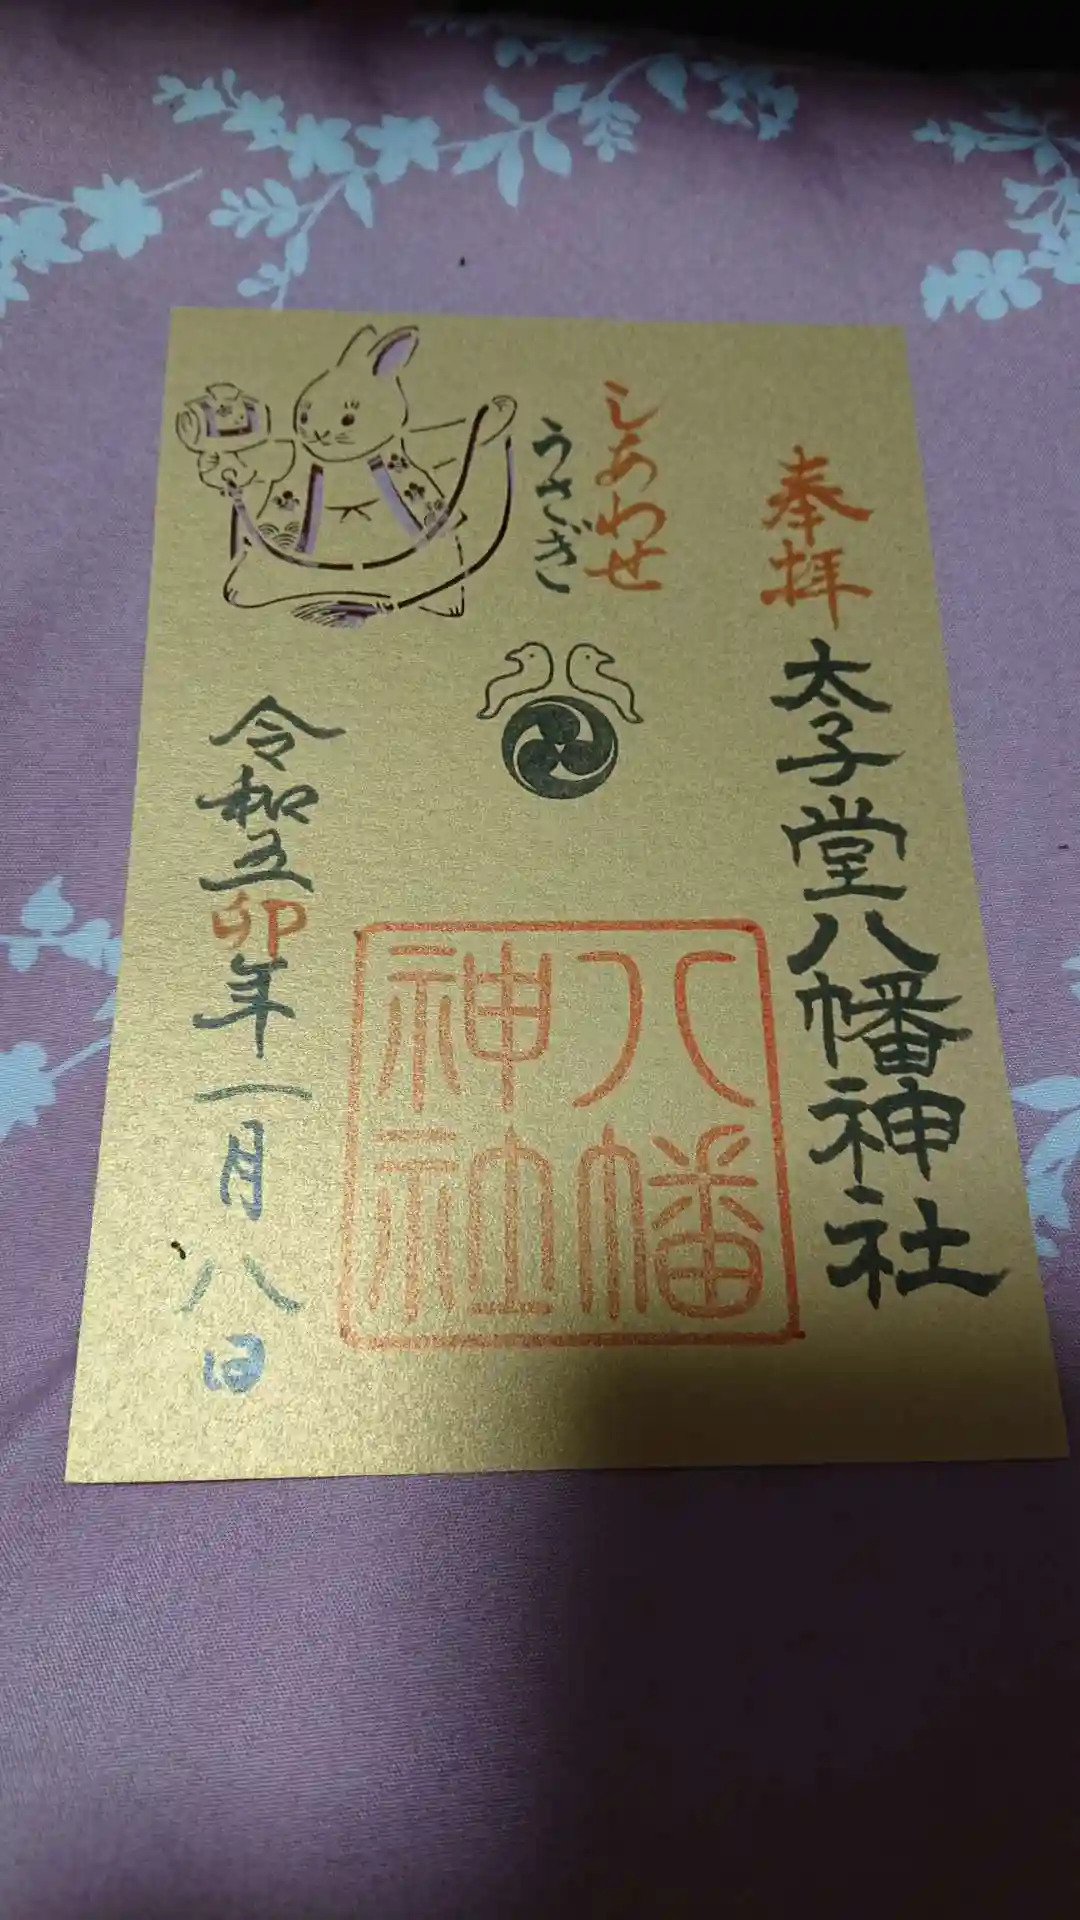 奉拝
太子堂八幡神社
しあわせ
うさぎ
八幡
神社
令和五卯年一月八日